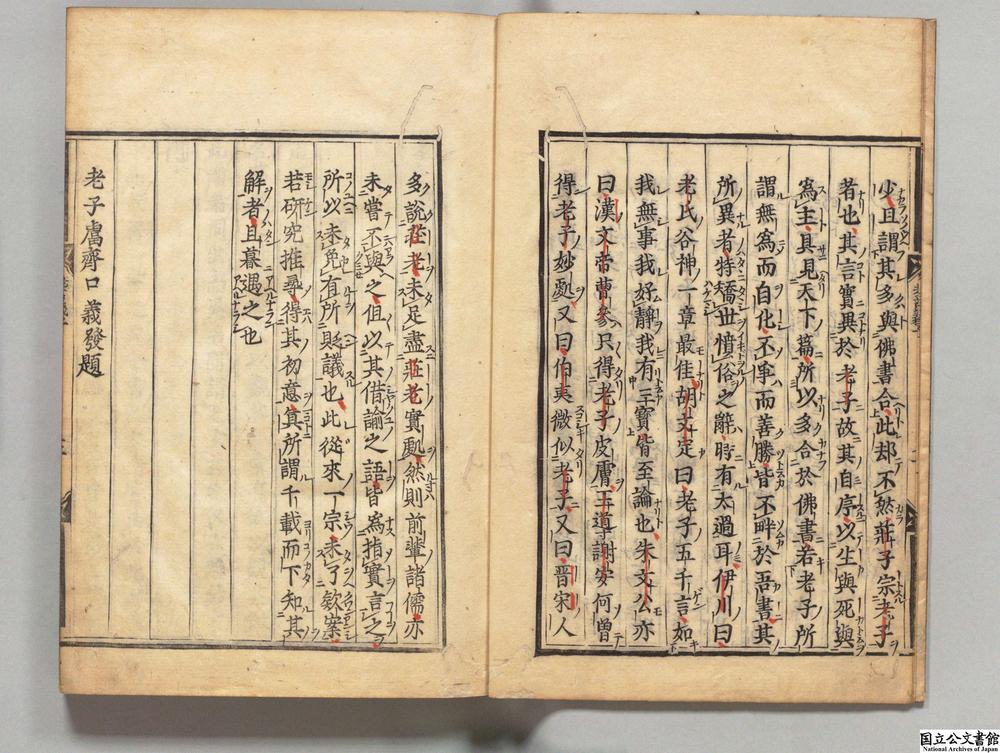 少且謂其多與佛書合此却不然莊子宗老子
者也其言實異於老子故其自序以生與死與
為主具見天下篇所以多合於佛書若老子所
謂無為而自化不爭而善勝皆不畔於吾書其
所異者特矯世憤俗之辭時有太過耳伊川曰
老氏谷神一章最佳胡文定曰老子五千言如
我無事我好靜我有三寶皆至論也朱文公亦
曰漢文帝曹參只得老子皮膚王導謝安何曽
得老子妙處又曰伯夷微似老子又曰晉宋人
多說莊老未足盡莊老實處然則前輩諸儒亦
未嘗不與之但以其借諭之語皆為指實言之
所以未免有所貶議也此從來一宗未了欵案
若研究推尋得其初意真所謂千載而下知其
解者且暮遇之也
老子鬳齋口義發題
国立公文書館
National Archives of Japan